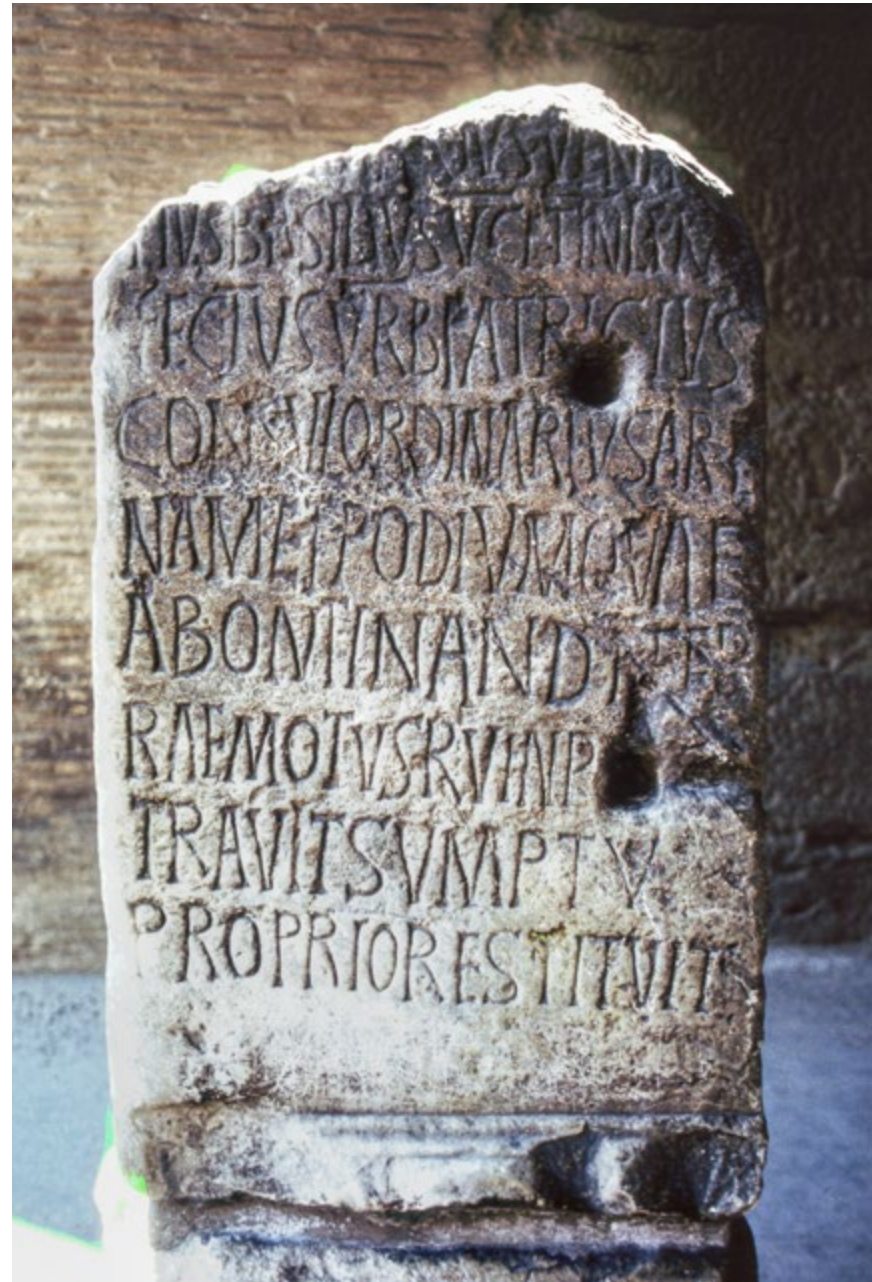 VENAN
TIVS BASILIVS VC ET INL PR
FECTVS VRB PATRICIVS
CONSVL ORDINARIVS ARE
NAM ET PODIVM QVAE
ABOMINANDI TER
RAE MOTVS RVIN P
TRAVIT SVMPTV
PROPRIO RESTITVIT